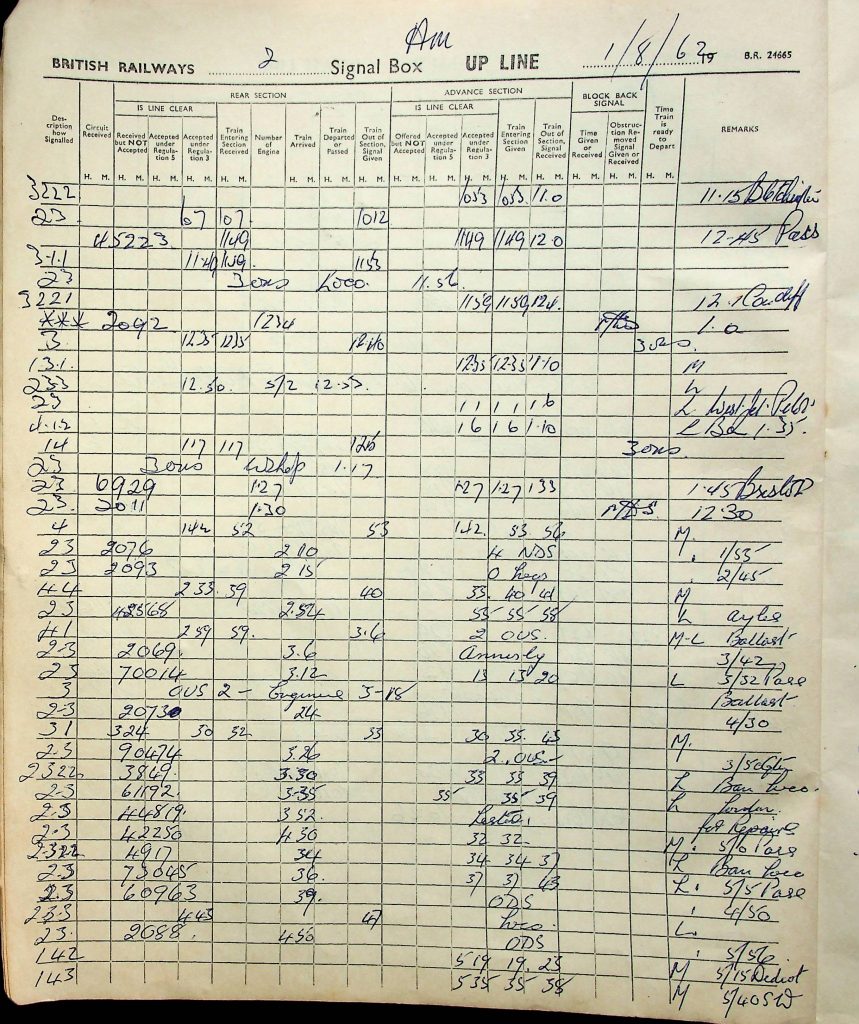 Am
BRITISH RAILWAYS 2 Signal Box UP LINE 1/8/62 19 B.R. 24665
REAR SECTION ADVANCE SECTION BLOCK BACK SIGNAL
IS LINE CLEAR IS LINE CLEAR
Description how Signalled Circuit Received Received but NOT Accepted Accepted under Regulation 5 Accepted under Regulation 3 Train Entering Section Received Number of Engine Train Arrived Train Departed or Passed Train Out of Section, Signal Given Offered but NOT Accepted Accepted under Regulation 5 Accepted under Regulation 3 Train Entering Section Given Train Out of Section, Signal Received Time Given or Received Obstruction Removed Signal Given or Received Time Train is ready to Depart REMARKS
H. M. H. M. H. M. H. M. H. M. H. M. H. M. H. M. H. M. H. M. H. M. H. M. H. M. H. M. H. M. H. M.
3222 1053 1055 11.0 11.15
23 107 107 1012
45223 1149 1149 1149 120 12-45 Pass
3-1.1 1149 1153
23 3 ous Loco. 11.56
3221 1159 1159 124 12.1 Cardiff
2092 1234 1.0
3 1235 1235 1240 3 ous.
13.1. 1235 1235 1.10 M
233 12.50. 5/2 12.53. L
23 1 1 1 1 1 6 L West Jct.
1 6 1 6 1.10 1.35.
14 117 117 120 3 ous
23 3 ous 1.17
23 6929 1.27 1.27 1.27 133 1.45 Bristol
23. 2011 1.30 12.30
4 142 52 53 142. 53 56 M.
23 2076 2 10 4 NDS 1/55
23 2093 2 15 2/45
44 233. 39 40 33. 40 41 M
23 42568 2.54 55 55 58 L
41 259 59. 3.6 2 OUS. M-L Ballast
23 2069. 3.6 Annesly 3/42
23 70014 3.12 13 13 20 L 5/32 Pass
3 OUS 2 - Engines 3-18 Ballast
2-3 20730 24 4/30
31 324 30 52 53 30 35 43 M.
2.3 90474 3.26 2. OUS-
2322 3849. 3.30 33 33 39 L Ban Loco.
2.3 61192. 3.35 35 35 39 L London
2.3 44819. 352 Lester. for Repairs
2.3 42250 430 32 32. M. 5/0 Pass
2322 4917 34 34 34 37 L Ban Loco
2.3 73045 36. 37 37 43 L. 5/5 Pass
2.3 60963 39. ODS 4/50
2.3.3 443 47 Loco. L.
23. 2088. 450 ODS 5/56.
142 519 19. 23 M 5/15 Didcot
143 535 35 38 M 5/40 SW